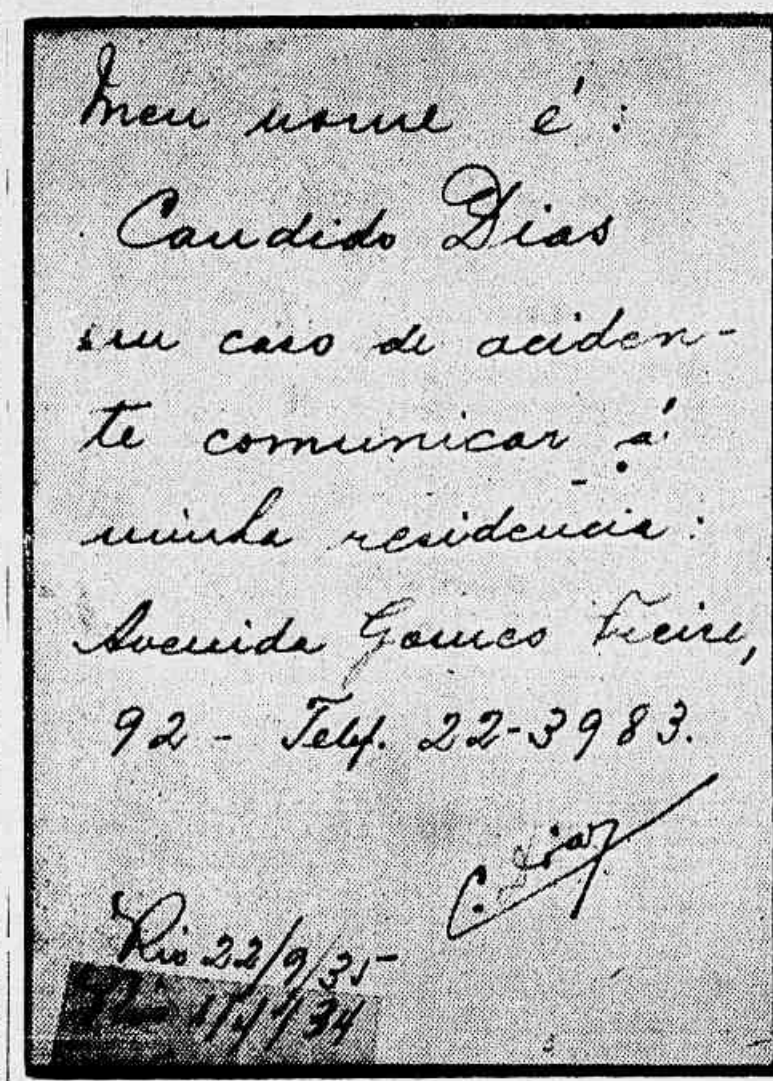 Meu nome é:
Candido Dias
em caso de aciden-
te comunicar á
minha residencia:
Avenida Gomes Freire,
92 - Telef. 22-3983.
C. Dias
Rio 22/9/35